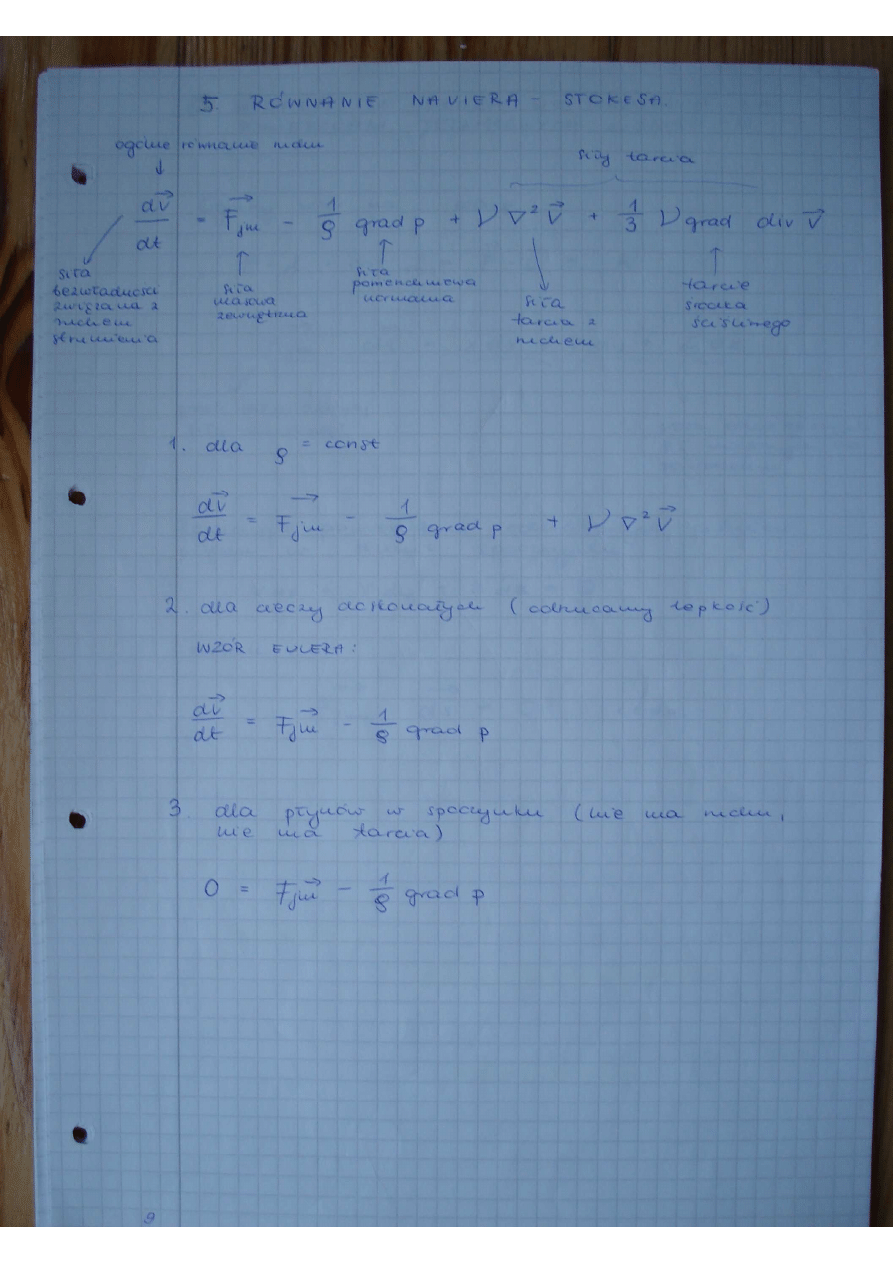 5. RÓWNANIE NAVIERA - STOKESA.
ogólne równanie ruchu
siły tarcia
↓
dv⃗/dt = F⃗jm - 1/ρ grad p + ν ∇² v⃗ + 1/3 ν grad div v⃗
siła
bezwładności
związana z
ruchem
strumienia
siła
masowa
zewnętrzna
siła
powierzchniowa
normalna
siła
tarcia z
ruchem
tarcie
środka
ściśliwego
1. dla ρ = const
dv⃗/dt = F⃗jm - 1/ρ grad p + ν ∇² v⃗
2. dla cieczy doskonałych (odrzucamy lepkość)
WZÓR EULERA:
dv⃗/dt = F⃗jm - 1/ρ grad p
3. dla płynów w spoczynku (nie ma ruchu,
nie ma tarcia)
0 = F⃗jm - 1/ρ grad p
9